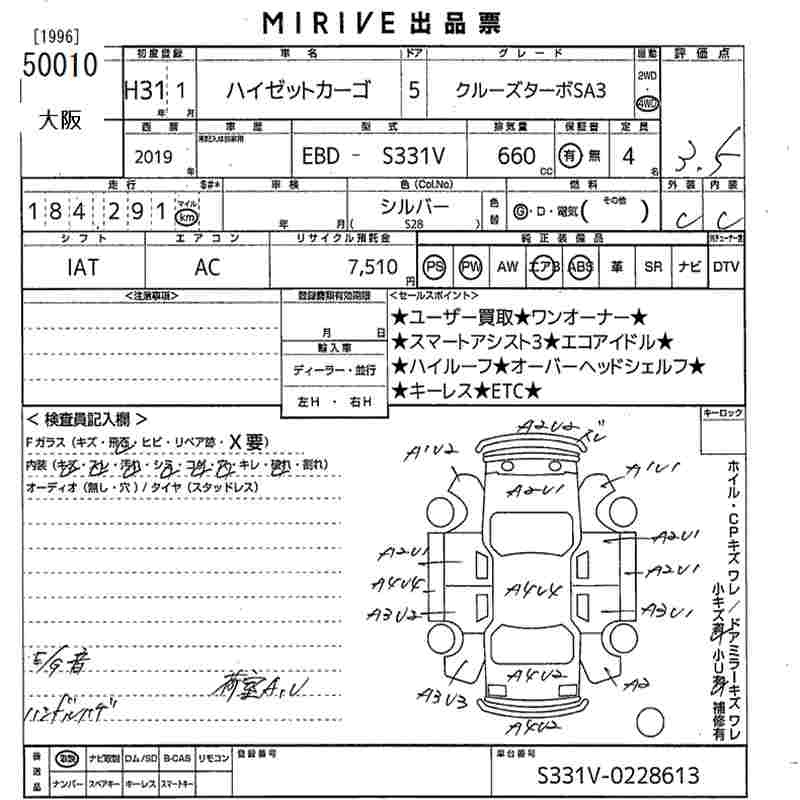 MIRIVE 出品票
[1996]
50010
大阪
初度登録 車名 ドア グレード 駆動 評価点
H31 1 ハイゼットカーゴ 5 クルーズターボSA3 2WD ・ 4WD
年 月
3.5
西暦 車歴 型式 排気量 保証書 定員
2019 年 EBD - S331V 660 CC 有 無 4 名
走行 車検 色(Col.No) 燃料 外装 内装
184,291 マイル km 年 月 シルバー ( S28 ) 色替 G・D・電気( その他 ) C C
シフト エアコン リサイクル預託金 純正装備品
IAT AC 7,510 円 PS PW AW エアB ABS 革 SR ナビ DTV
<注意事項> 登録書類有効期限 <セールスポイント>
月 日
輸入車
ディーラー・並行
左H ・ 右H
★ユーザー買取★ワンオーナー★
★スマートアシスト3★エコアイドル★
★ハイルーフ★オーバーヘッドシェルフ★
★キーレス★ETC★
<検査員記入欄> キーロック
Fガラス(キズ・飛石・ヒビ・リペア跡・X要)
内装(キズ・スレ・汚れ・シミ・コゲ・穴・キレ・破れ・割れ)
オーディオ(無し・穴)/タイヤ(スタッドレス)
A2V2
A1V2 A1V1
A2V1
A2V1 A2V1
A2V1
A4V4 A4V4
A3V2 A3V1
A4V2
A3V3 A2
A4V2
ホイル・CPキズワレ/ドアミラーキズワレ
小キズ 小U 補修有
E/G音
荷室A,U
ハンドルハゲ
後送品 取説 ナビ取説 ロム/SD B-CAS リモコン 登録番号 車台番号
ナンバー スペアキー キーレス スマートキー
S331V-0228613